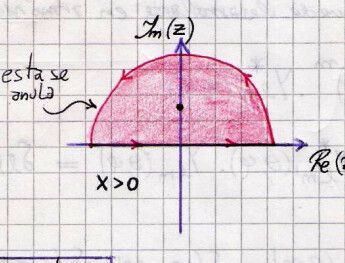 Im(z)
esta se
anula
Re(z
x>0